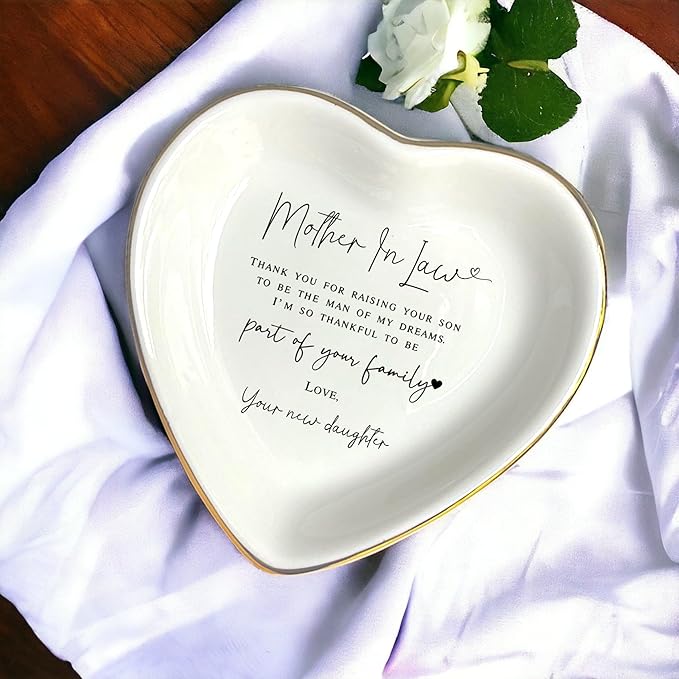 Mother In Law
THANK YOU FOR RAISING YOUR SON
TO BE THE MAN OF MY DREAMS.
I'M SO THANKFUL TO BE
part of your family
LOVE,
Your new daughter